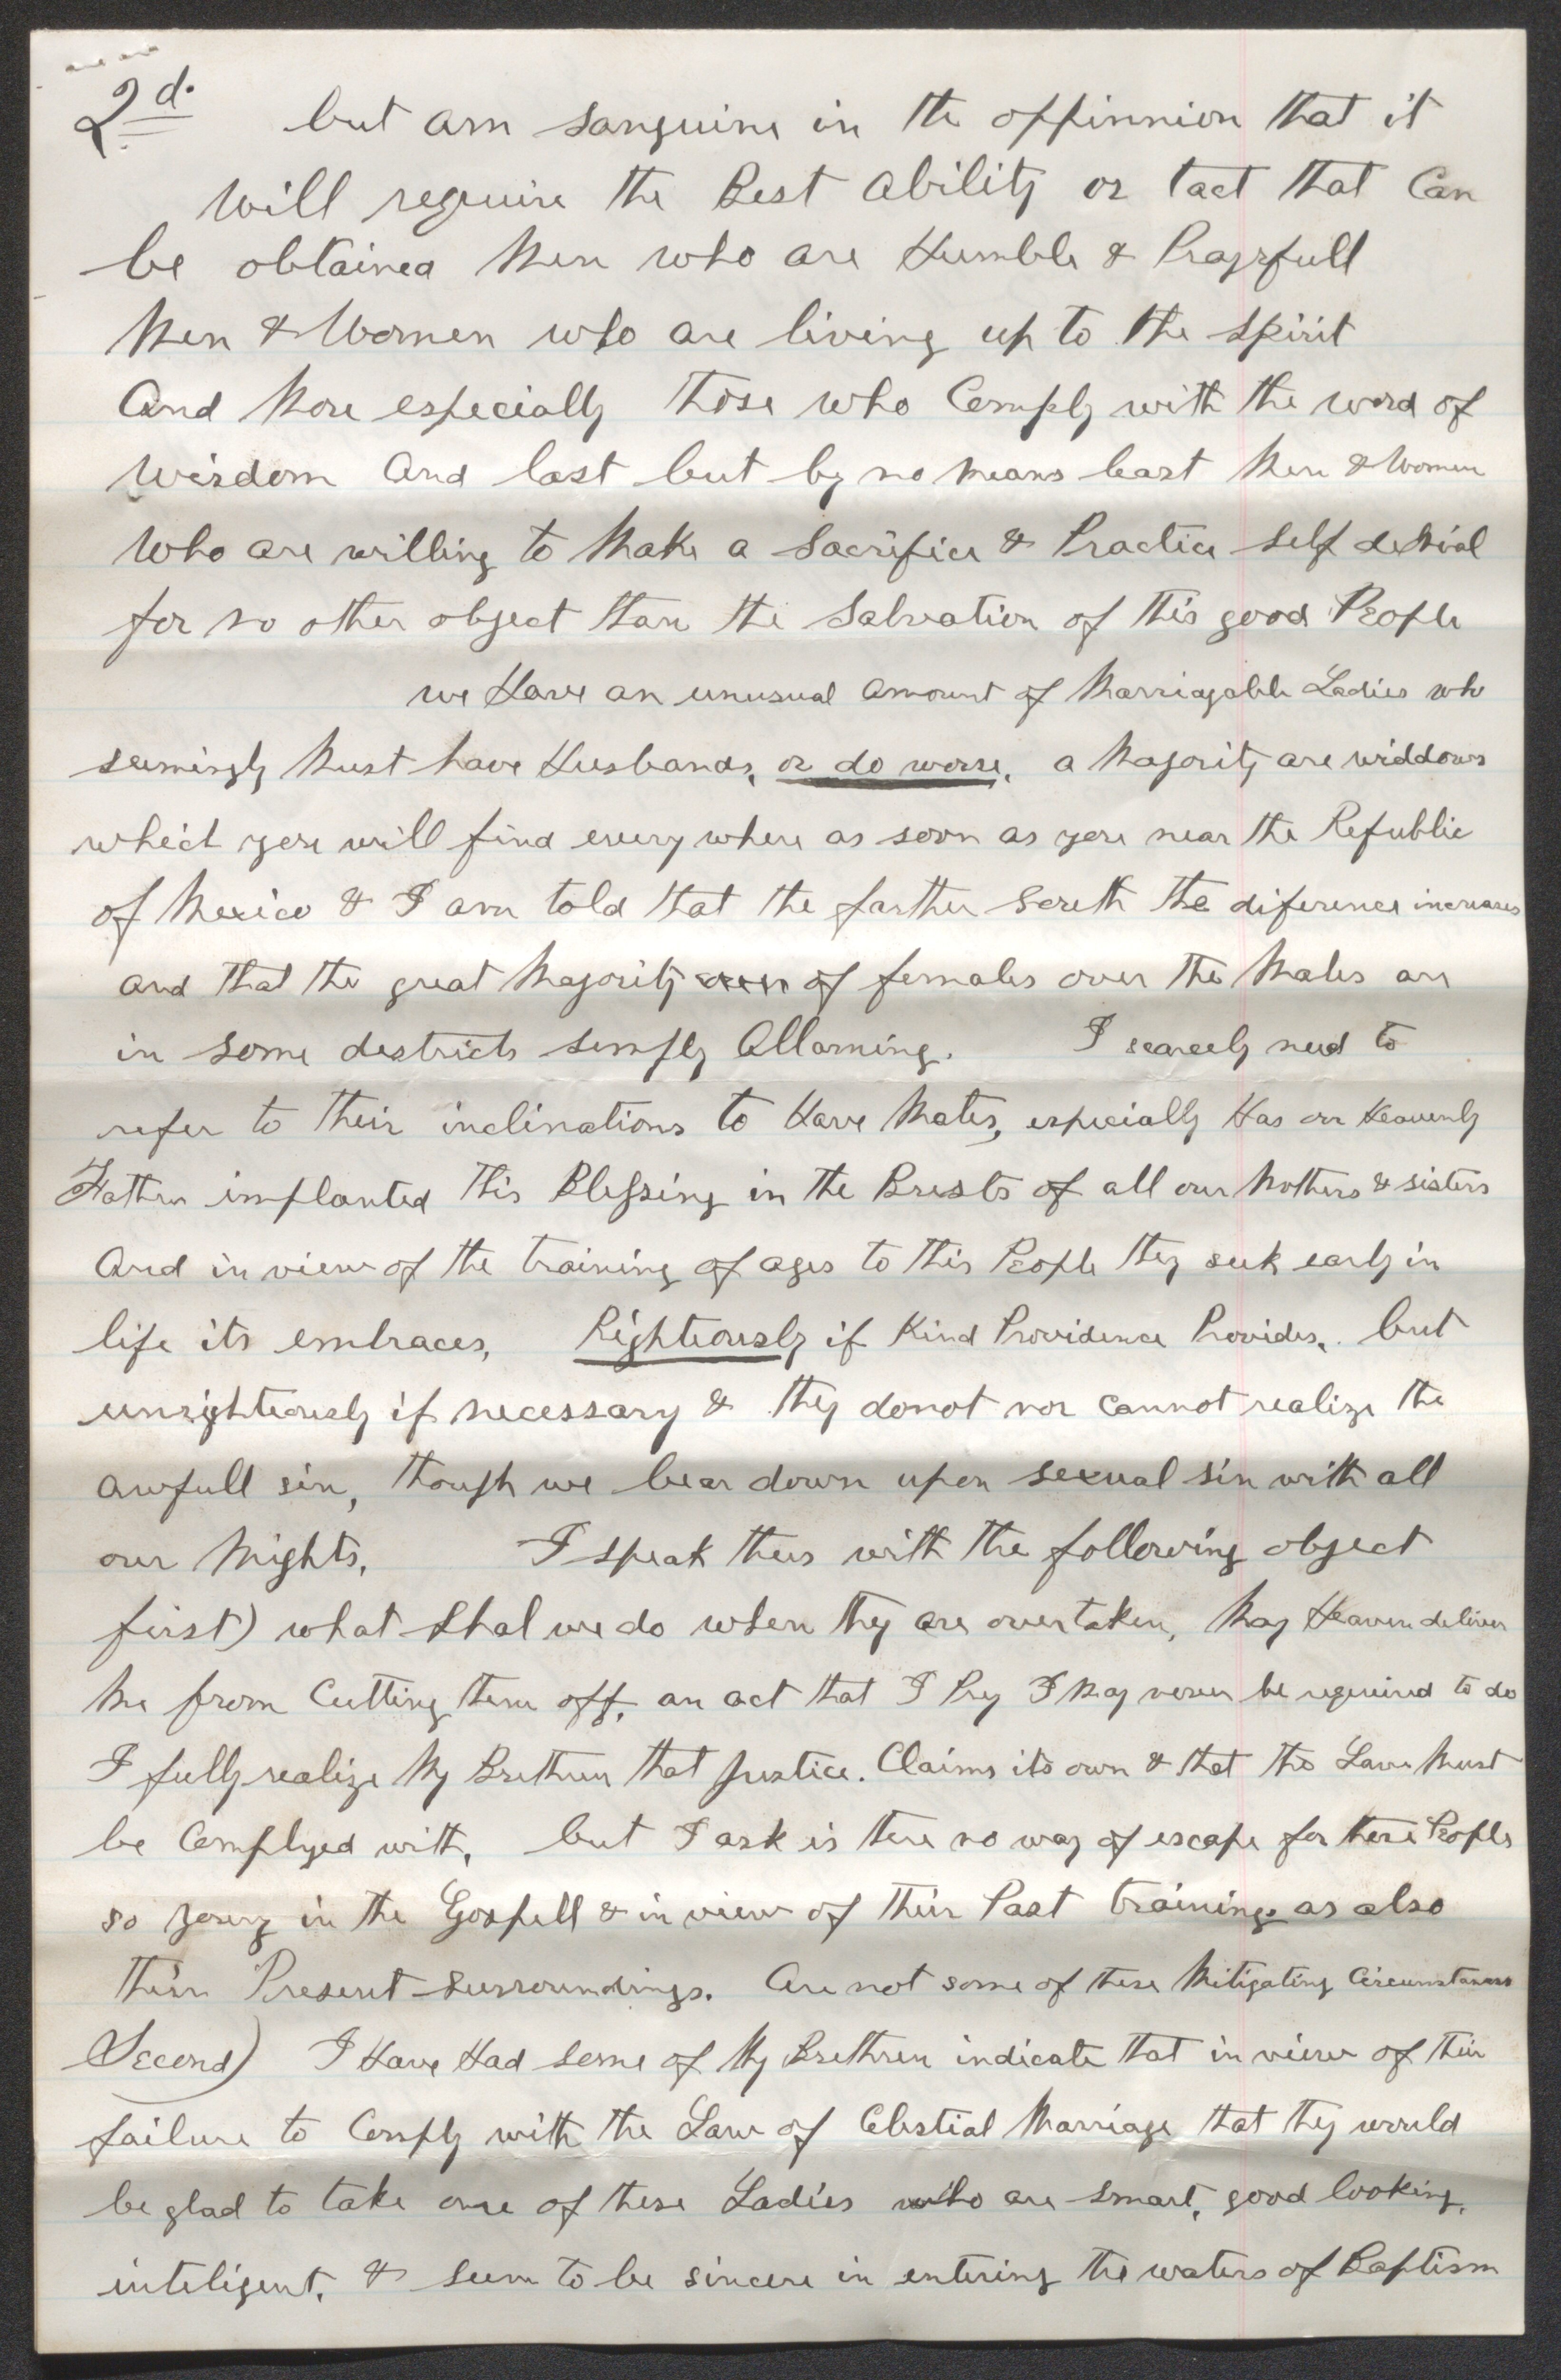 2d. but am sanguine in the oppinnion that it
will require the Best ability or tact that Can
be obtained Men who are Humble & Prayrfull
Men & Women who are living up to the spirit
And More especially those who Comply with the word of
Wisdom And last but by no means least Men & Women
Who are willing to Make a Sacrifice & Practice self denial
for no other object than the Salvation of this good People
we Have an unusual amount of Marriagable Ladies who
seemingly Must have Husbands, or do worse, a Majority are widdows
which you will find every where as soon as you near the Republic
of Mexico & I am told that the farther South the diference increases
and that the great Majority of females over the Males are
in some destricts simply Allarming. I scarcely need to
refer to their inclinations to Have Mates, especially Has our Heavenly
Father implanted this Blessing in the Brests of all our Mothers & sisters
And in view of the training of ages to this People they seek early in
life its embraces, Righteously if Kind Providence Provides, but
unrighteously if necessary & they donot nor cannot realize the
awfull sin, though we bear down upon sexual sin with all
our Mights, I speak thus with the following object
first) what shal we do when they are overtaken, May Heaven deliver
Me from Cutting them off, an act that I Pry I May never be required to do
I fully realize My Brethren that justice. Claims its own & that the Law Must
be Complyed with, but I ask is there no way of escape for these People
so young in the Gospell & in view of their Past training. as also
their Present surroundings. Are not some of these Mitigating Circumstances
Second) I Have Had some of My Brethren indicate that in view of their
failure to Comply with the Law of Celestial Marriage that they would
be glad to take one of these Ladies who are smart, good looking,
inteligent, & seem to be sincere in entering the waters of Baptism